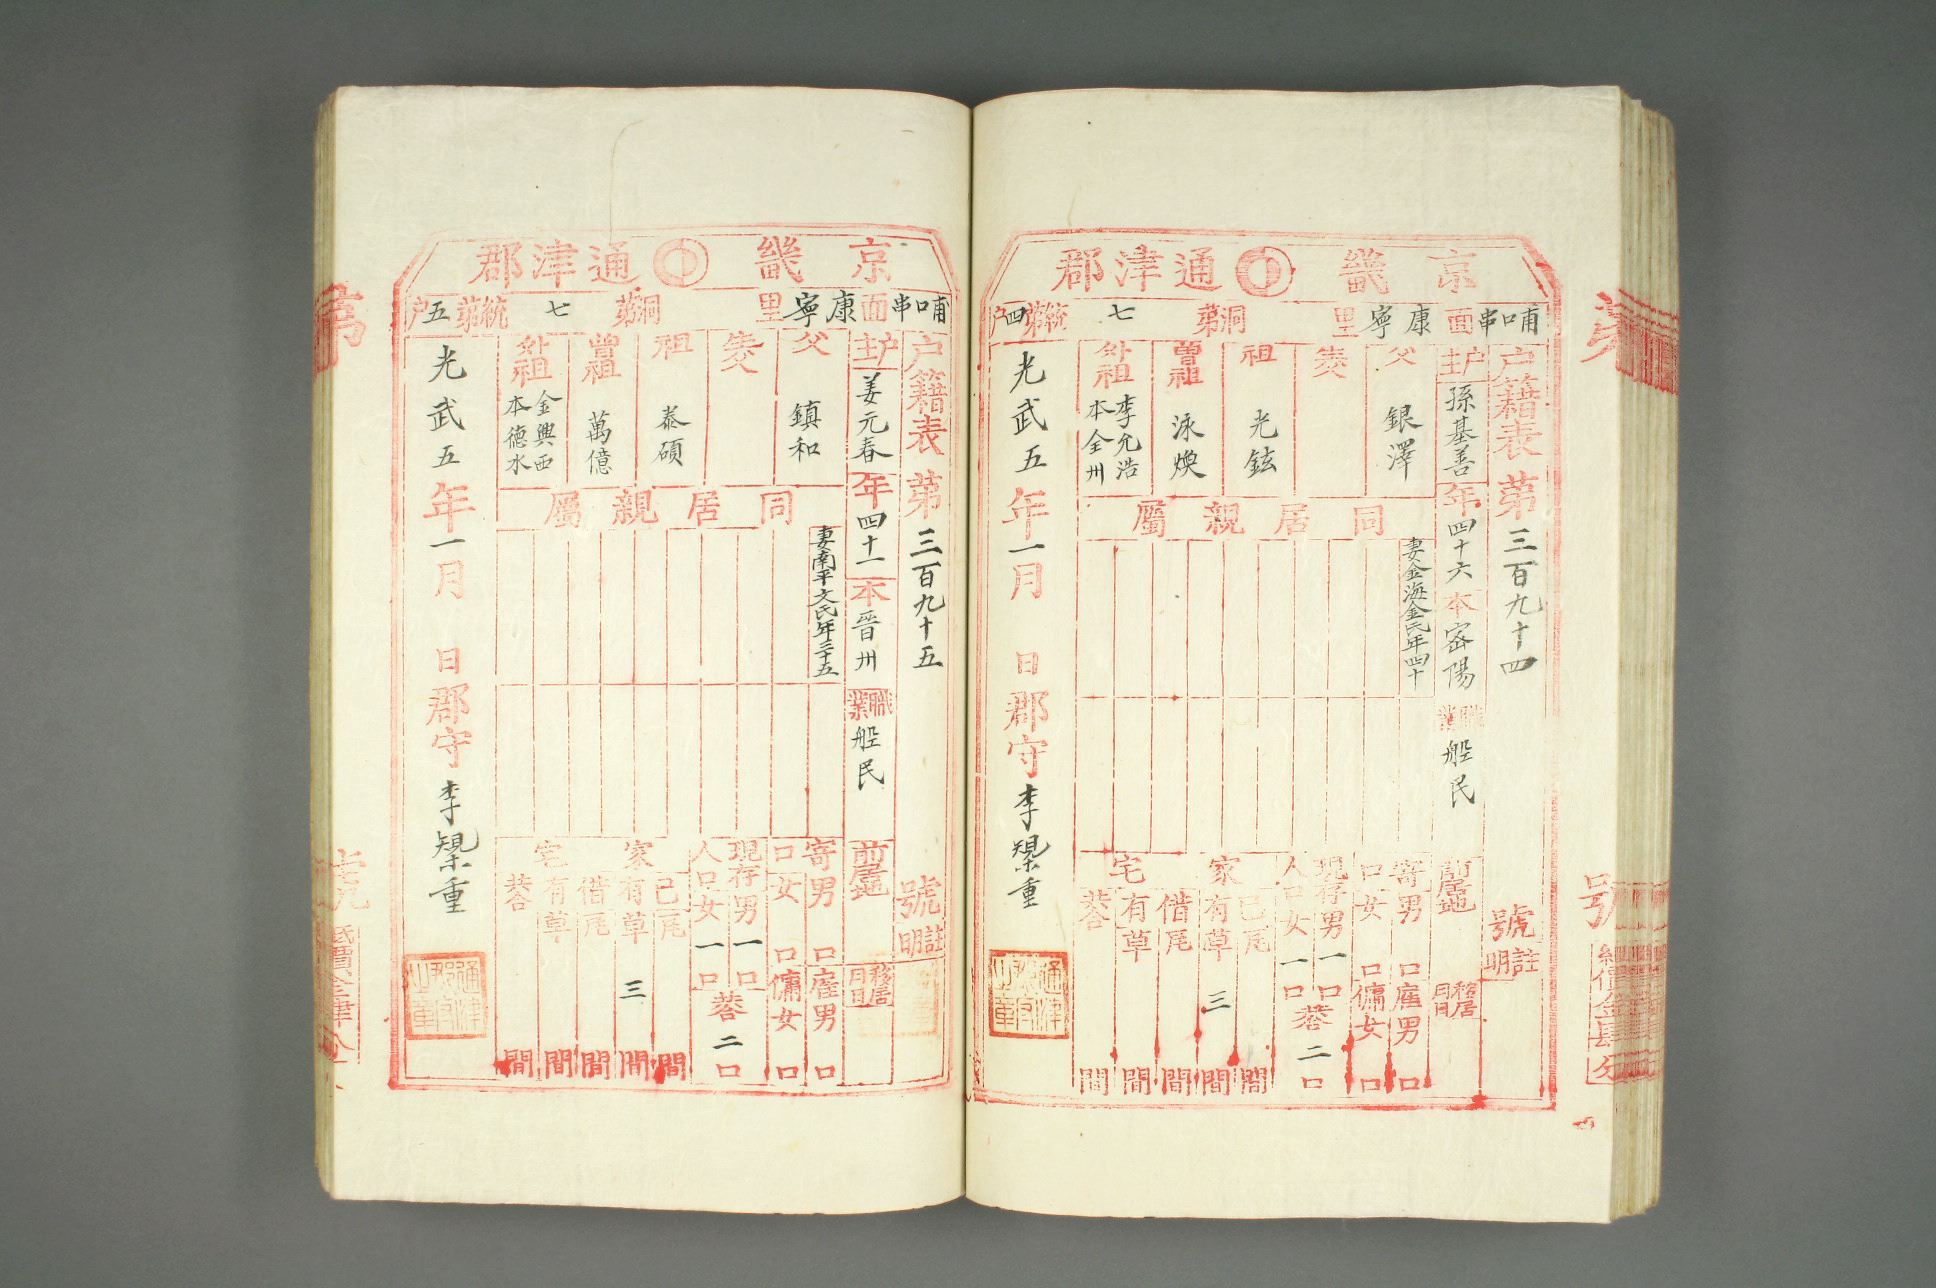 京畿 通津郡
哺口串面康寧里 洞第七統第四户
户籍表第三百九十四號
註明
户主孫基善年四十六本密陽職業船民
前居地
移居 月 日
父 銀澤
生父
祖 光鉉
曾祖 泳煥
外祖 李允浩 本全州
同居親屬
妻金海金氏年四十
寄口 男 口 女 口
雇男 口 傭女 口
現存人口 男一口 女一口 共二口
家宅
己有 瓦 間 草三間
借有 瓦 間 草 間
共 間
光武五年一月 日郡守李榘重
京畿 通津郡
哺口串面康寧里 洞第七統第五户
户籍表第三百九十五號
註明
户主姜元春年四十一本晋州職業船民
前居地
移居 月 日
父 鎮和
生父
祖 泰碩
曾祖 萬億
外祖 金興西 本德水
同居親屬
妻南平文氏年三十五
寄口 男 口 女 口
雇男 口 傭女 口
現存人口 男一口 女一口 共二口
家宅
己有 瓦 間 草三間
借有 瓦 間 草 間
共 間
光武五年一月 日郡守李榘重